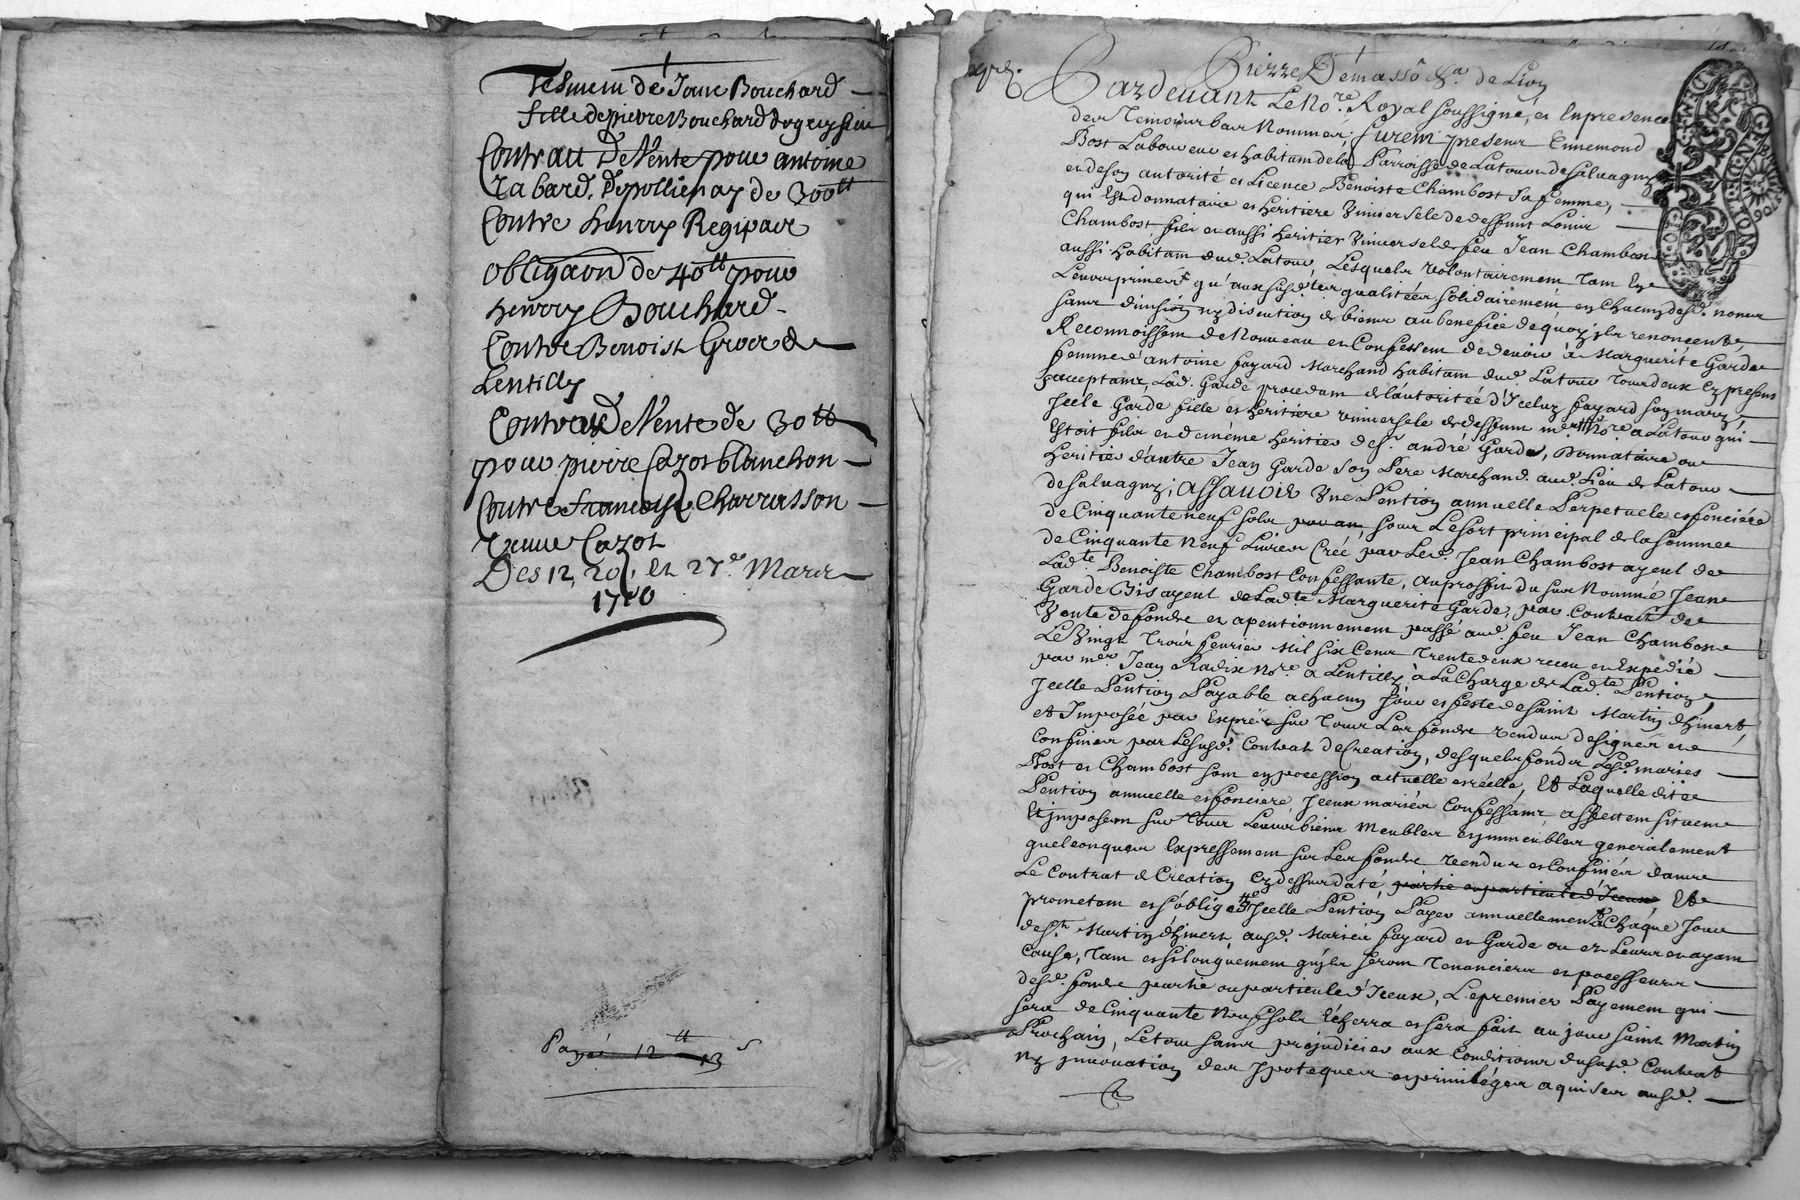 Testmem de Jane Bouchard
fille de pierre Bouchard
Contratt De Vente pour antoine
Rabard. De pollienay de 300tt
Contre henrry Regipact
obligaon de 40tt pour
henrry Bouchard
Contre Benoist Groce de
Lentilly
Contract De Vente de 30tt
pour pierre Cazot blanchon
Contre francoise Charrasson
veuve Cazot
Des 12, 20, et 27e. Mars
1720
Payé 12tt 13s
Pierre Demasso Esr. de Lion
Pardevant Le Nore. Royal soussigné, et En presence
des Temoins bas Nommés, furent presens Ennemond
Bost Laboureur et habitam de la Parroisse de Latour de Salvagny
et de son autorité et Licence Benoiste Chambost sa femme,
qui Est donnataire et heritiere Vniverselle de deffunt Louis
Chambost, fils et aussi heritier Vniversel de feu Jean Chambost
aussi habitam dud. Latour, Lesquels volontairement Tam En
Leurs privés qu'aux susd. tes qualitées solidairement et chacun desd. noms
sans division ny discution de biens au benefice de quoy ils renoncent
Reconnoissem de Nouveau et Confessem de devoir à Marguerite Garde
femme d'antoine fayard Marchand habitam dud. Latour tous deux Cy presens
acceptans, Lad. Garde procedam de l'autoritée d'Iceluy fayard son mary,
Icele Garde fille et heritiere vniversele de deffunt me. Nore. a Latour qui
Estoit fils et demême heritier de sr. andré Garde, Donnataire ou
heritier d'autre Jean Garde son Pere Marchand aud. Lieu de Latour
de salvagny; Assavoir Vne Pention annuelle Perpetuele et fonciére
de Cinquante neuf sols par an, sous Le sort principal de la somme
de Cinquante Neuf Livres Créé par Led. Jean Chambost ayeul de
Ladte. Benoiste Chambost Confessante, au proffit du sus Nommé Jean
Garde Bisayeul de Ladte. Marguerite Garde, par Contract de
Vente de fonds et apentionnement passé aud. feu Jean Chambost
Le Vingt Trois fevrier Mil six Cens Trente deux receu et Expedié
par me. Jean Radix Nore. a Lentilly à La Charge de Ladte. Pention,
Icelle Pention Payable a chacun Jour et feste de saint Martin d'hivert,
et Imposée par Exprés sur Tous Les fonds vendus designés et
Confinés par Le susd. Contrat de Creation, desquels fonds Lesd. mariés
Bost et Chambost sont en pocession actuelle et réelle, Et Laquelle dite
Pention annuelle et fonciere, Iceux mariés Confessans, assettem situeme
Et imposem sur Tous Leurs biens Meubles et immeubles generalement
quelconques Expressement sur Les fonds vendus et Confinés dans
Le Contrat de Creation Cy dessus daté, partie ou particule d'Iceux Et
prometam et s'obligent Icelle Pention Payer annuellement a Chaque Jour
de st. Martin d'hivert, ausd. Mariés fayard et Garde ou et Leurs en ayam
cause, Tam et si longuement qu'jls serom Tenanciers et pocesseurs
desd. fonds partie ou particule d'Iceux, Le premier Payement qui
sera de Cinquante Neuf sols Echerra et sera fait au jour saint Martin
Prochain, Le tout sans prejudicier aux Conditions du susd. Contrat
ny jnnovation des ypoteques et priviléges aquis sur ausd.